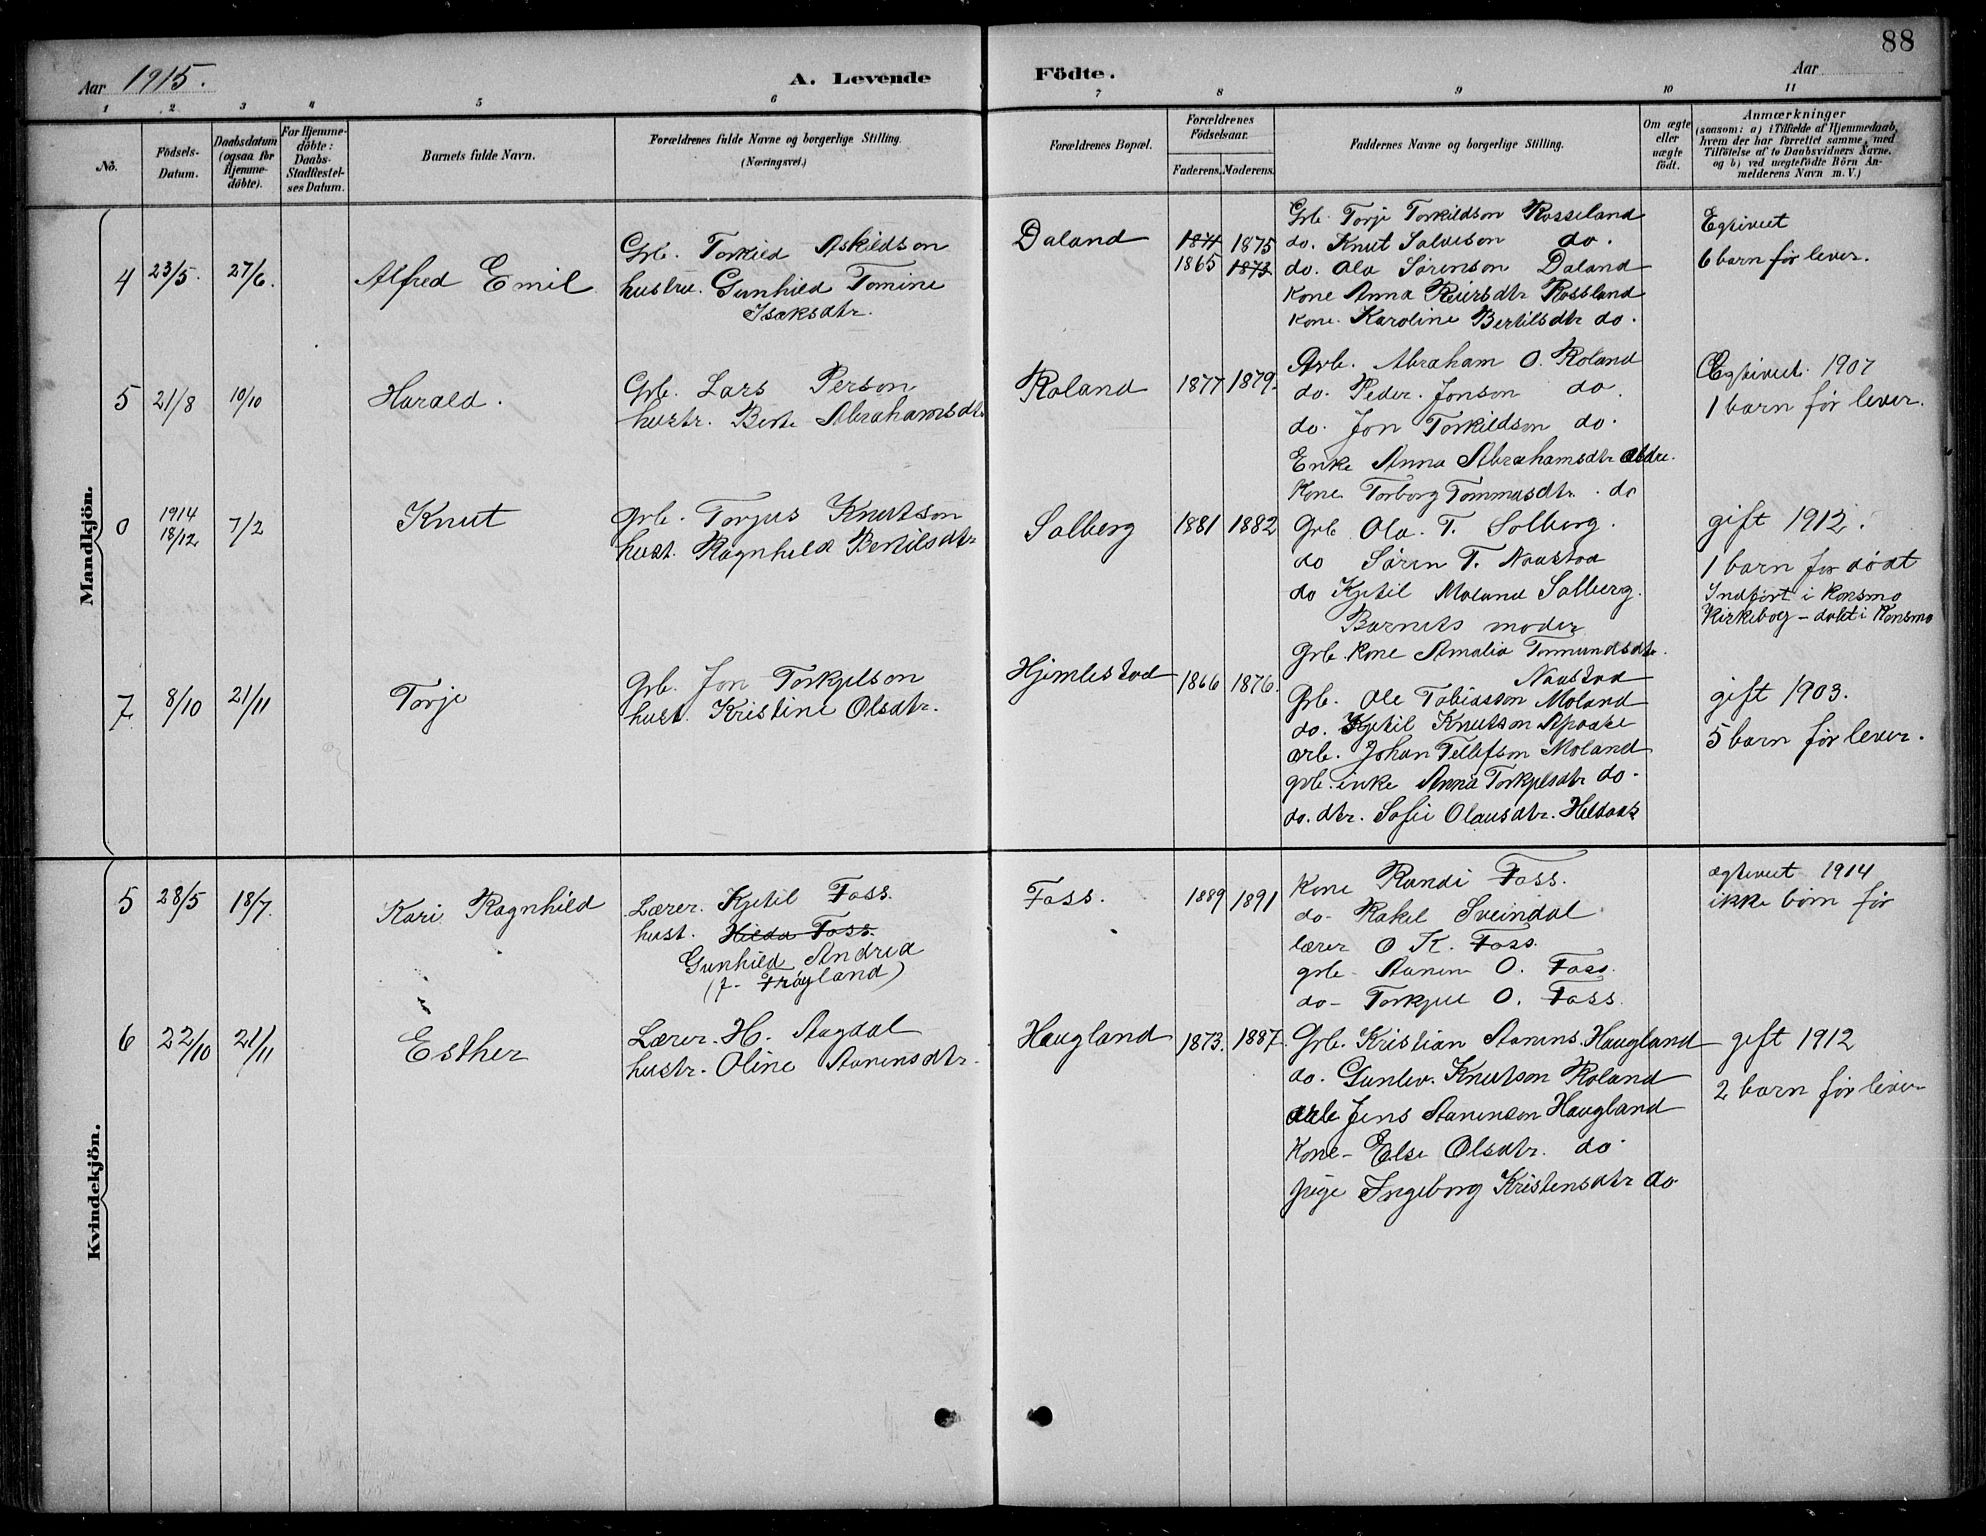 88
Aar 1915.
A. Levende Födte.
Aar
1 2 3 4 5 6 7 8 9 10 11
No.
Födsels-
Datum.
Daabsdatum
(ogsaa for
Hjemme-
døbte).
For Hjemme-
döbte:
Daabs-
Stadfæstel-
ses Datum.
Barnets fulde Navn.
Forældrenes fulde Navne og borgerlige Stilling.
(Næringsvei.)
Forældrenes Bopæl.
Forældrenes
Födselsaar.
Faderens. Moderens.
Faddernes Navne og borgerlige Stilling.
Om ægte
eller
uægte
födt.
Anmærkninger
(saasom: a) i Tilfælde af Hjemmedaab,
hvem der har forrettet samme, med
Tilföielse af to Daabsvidners Navne,
og b) ved uægtefödte Börn An-
melderens Navn m. V.)
Mandkjön.
4 23/5. 27/6. Alfred Emil
Grb. Torkild Askildson
hustru. Gunhild Tomine
Isaksdtr.
Daland
1871 1875
1865 1873
Grb. Torje Torkildson Rosseland
do. Knut Salveson do.
do. Ola Sørenson Daland
Kone Anna Reiersdtr Rossland
Kone. Karoline Bertilsdtr do.
Egtiviet
6 barn før lever.
5 21/8 10/10 Harald.
Grb. Lars Person
hustr. Berte Abrahamsdtr
Roland
1877 1879.
Grb. Abraham O. Roland
do. Peder. Jonson do.
do. Jon Torkildson do.
Enke Anna Abrahamsdtr ældre.
Kone Torborg Tommasdtr. do
Egtiviet. 1907
1 barn før lever.
0 1914
18/12 7/2 Knut
Grb. Torjus Knutson
hust. Ragnhild Bertilsdtr
Solberg
1881 1882
Grb Ola. T. Solberg.
do Søren T. Naustad
do Kjetil Moland Solberg.
Barnets moder
Grb. Kone Amalia Tormundsdtr.
Naustad
gift 1912.
1 barn før dødt
Indført i Konsmo
Kirkebog – døbt i Konsmo
7 8/10 21/11 Torje
Grb. Jon Torkjelson
hust. Kristine Olsdtr.
Hjemlestad
1866 1876.
Grb. Ole Tobiasson Moland
do. Kjetil Knutson
arb. Johan Tellefson Moland
grb. enke Anna Torkjelsdtr do.
do. dtr. Sofie Olausdtr.
gift 1903.
5 barn før lever.
Kvindekjön.
5 28/5 18/7. Kari Ragnhild
Lærer. Kjetil Foss.
hust. Hilda Foss.
Gunhild Andrea
(f. Frøyland)
Foss.
1889 1891
Kone Randi Foss.
do- Rakel Sveindal
lærer O K. Foss.
grb- Aanen O. Foss.
do- Torkjell O. Foss.
ægtiviet 1914
ikke børn før
6 22/10 21/11 Esther
Lærer. H. Aagdal
hustr. Oline Aanensdtr.
Haugland
1873. 1887.
Grb. Kristian Aanens. Haugland
do. Gunlev. Knutson Roland
arb Jens Aanenson Haugland
Kone- Else Olsdtr. do
pige Ingeborg Kristensdtr do
gift 1912
2 barn før lever